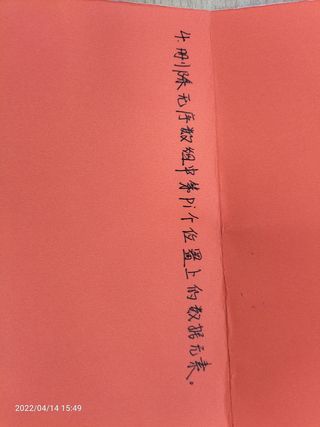 4.删除无序数组中第pi个位置上的数据元素。
2022/04/14 15:49